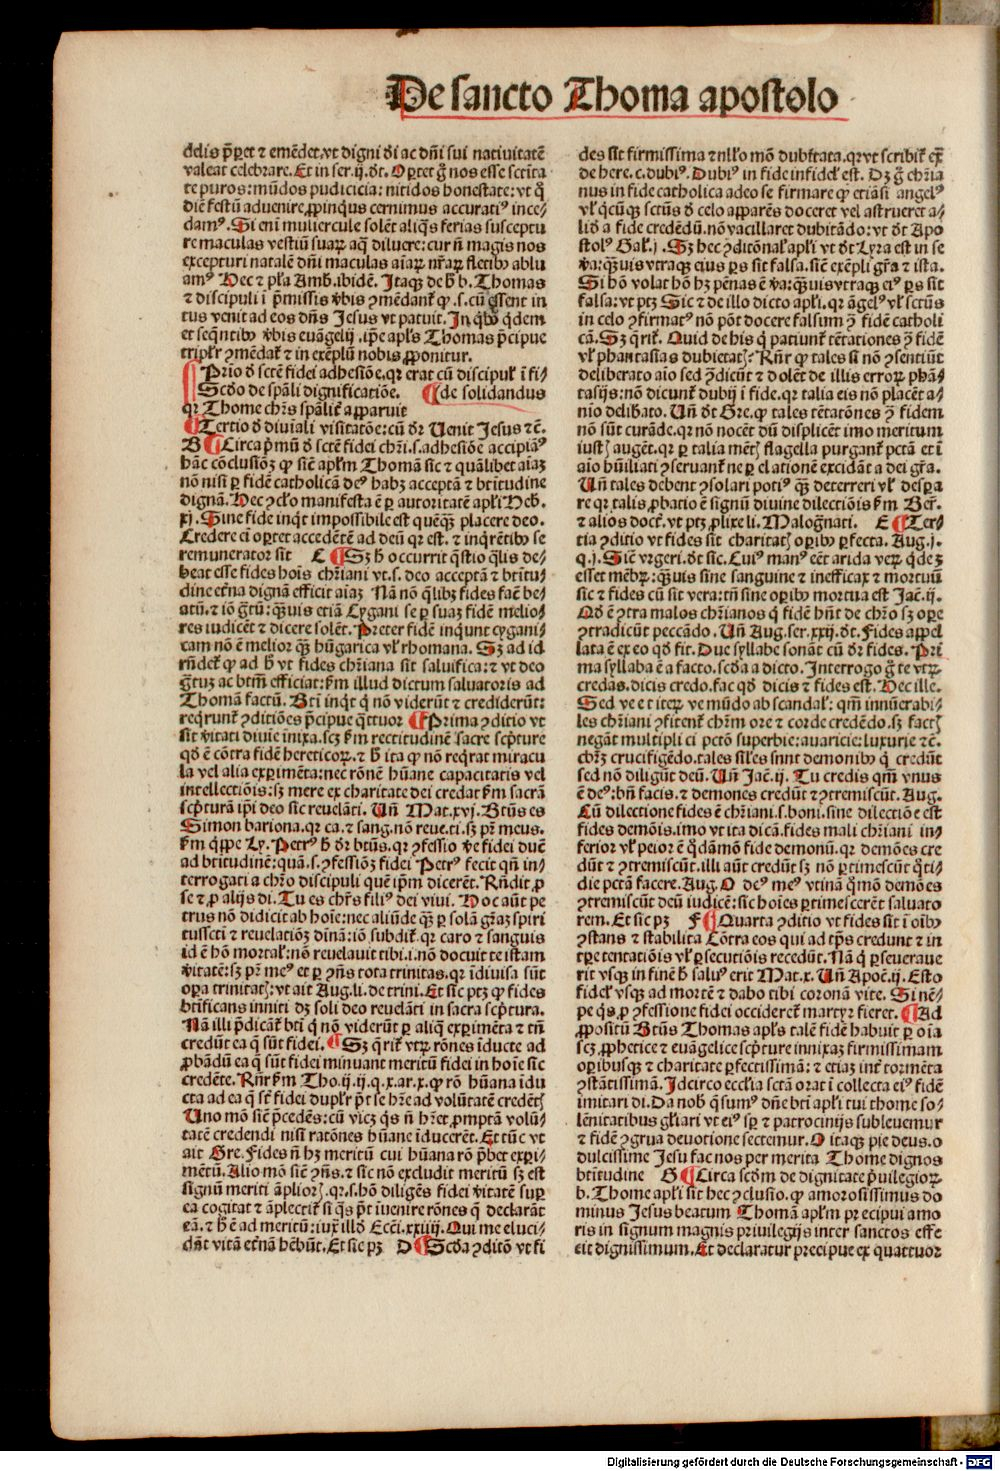 De sancto Thoma apostolo
ddis p̄ꝑet ⁊ emēdet.vt digni di ac dn̄i sui natiuitatē
valeat celebrare. Et in ser.ij.dt. Oꝑtet ḡ nos esse sctita
te puros: mūdos pudicicia: nitidos honestate: vt q̄
diē festū aduenire ꝓpinqus cernimus accuratiꝰ ince/
damꝰ. Si eni muliercule solēt aliq̄s ferias susceptu
re maculas vestiū suaꝝ aq̄ diluere: cur n̄ magis nos
excepturi natalē dn̄i maculas aīaꝝ nr̄aꝝ fletibꝰ ablu
amꝰ. Hec ⁊ pl̄a Amb. ibidē. Itaqꝫ de b̄ b. Thomas
⁊ discipuli ī p̄missis v̄bis ꝯmēdant̄ ꝙ .s. cū essent in
tus venit ad eos dn̄s Jesus vt patuit. In qͥbꝰ qͥdem
et seqn̄tibꝰ v̄bis euāgelij .ip̄e apl̄s Thomas p̄cipue
triplr̄ ꝯmēdat̄ ⁊ in exemplū nobis ꝓponitur.
Prīo d̄ scte fidei adhesiōe. qꝛ erat cū discipul̄ ī fi/
Scdo de sp̄ali dignificatiōe. de solidandus
qꝛ Thome chr̄s sp̄alit̄ apparuit
Tertio d̄ diuiali visitatōe: cū dꝛ Uenit Jesus ⁊c̄.
B Circa p̄mū d̄ scte fidei chr̄i .s. adhesiōe accipiaꝰ
hāc cōclusiōꝫ ꝙ sic̄ apl̄m Thomā sic ⁊ quālibet aīaꝫ
nō nisi ꝑ fidē catholicā deꝰ habꝫ acceptā ⁊ btītudine
dignā. Hec ꝯclo manifesta ē ꝑ autoritatē apl̄i Heb.
xj. Sine fide inqͥt impossibile est quēqꝫ placere deo.
Credere ei oꝑtet accedētē ad deū qꝛ est. ⁊ inqͥrētibꝰ se
remunerator sit C Sꝫ h̄ occurrit q̄stio qͣlis de-
beat esse fides hoīs chr̄iani vt .s. deo acceptā ⁊ btītu/
dine etn̄a dignā efficit aīaꝫ Nā nō qͥlibꝫ fides facē be/
atū. ⁊ iō ḡtū: qͣuis etiā Cygani se ꝑ suaꝫ fidē melio/
res iudicēt ⁊ dicere solēt. Preter fidē inqͥunt cygani/
cam nō ē melior qͣꝫ hūgarica vl̄ rhomana. Sꝫ ad id
rn̄dek̄ ꝙ ad h̄ vt fides chr̄iana sit saluifica: ⁊ vt deo
ḡtuꝫ ac btm̄ efficiat: ẜm illud dictum saluatoris ad
Thomā factū. Bti inqͥt qͥ nō viderūt ⁊ crediderūt:
reqͥrunt̄ ꝯditiōes p̄cipue qͣttuor Prima ꝯditio vt
sit v̓itati diuīe inixa. scꝫ ẜm rectitudinē sacre scp̄ture
qd̓ ē cōtra fidē hereticoꝝ. ⁊ h̄ ita ꝙ nō reqͥrat miracu
la vel alia experimēta: nec rōnē hūane capacitatis vel
intellectiōis: sꝫ mere ex charitate dei credat ẜm sacrā
scp̄turā ip̄i deo sic reuelāti. Un̄ Mat.xvj. Btūs es
Simon bariona. qꝛ ca. ⁊ sang. nō reue. ti. sꝫ pr̄ meus.
ẜm qͥppe Ly. Petrꝰ h̄ dꝛ btūs. qꝛ ꝯfessio v̓e fidei duxē
ad btitudinē: quā .s. ꝯfessiōꝫ fidei Petrꝰ fecit qn̄ in/
terrogati a chr̄o discipuli quē ip̄m dicerēt. Rn̄dit ꝑ
se ⁊ ꝑ alijs di. Tu es chr̄s filiꝰ dei viui. Hoc aūt pe
trus nō didicit ab hoīe: nec aliūde qͣꝫ ꝑ solā gr̄aꝫ spiri
tussc̄ti ⁊ reuelatiōꝫ diīnā: iō subdit̄. qꝛ caro ⁊ sanguis
id ē hō mortal̄: nō reuelauit tibi .i. nō docuit te istam
v̓itatē: sꝫ pr̄ meꝰ et ꝑ ꝯn̄s tota trinitas. qꝛ īdiuisa sūt
oꝑa trinitatꝭ: vt ait Aug. li. de trini. Et sic ptꝫ ꝙ fides
btificans inniti dꝫ soli deo reuelāti in sacra scp̄tura.
Nā illi p̄dicāt̄ bti qͥ nō viderūt ꝑ aliqͣ experimēta ⁊ tn̄
credūt ea q̄ sūt fidei. Sꝫ qͥrit̄ vtꝝ rōnes īducte ad
ꝓbādū ea q̄ sūt fidei minuant meritū fidei in hoīe sic
credēte. Rn̄r ẜm Tho. ij. ij. q. x. ar. x. ꝙ rō hūana īdu
cta ad ea q̄ st̄ fidei duplr̄ p̄t se hr̄e ad volūtatē credētꝭ
Uno mō sic̄ p̄cedēs: cū vicꝫ qͥs n̄ hr̄et ꝓmptā volū/
tatē credendi nisi ratōnes hūane īducerēt. Et tūc vt
ait Gre. Fides n̄ hꝫ meritū cui hūana rō p̄bet experi/
mētū. Alio mō sic̄ ꝯn̄s. ⁊ sic nō excludit meritū sꝫ est
signū meriti āpliorꝭ. qꝛ .s. hō diligēs fidei v̓itatē suꝑ
ea cogitat ⁊ āplectit̄ si qͥs p̄t iuenire rōnes q̄ declarāt
eā. ⁊ h̄ ē ad meritū: iux̄ illd̓ Ecci. xxiiij. Qui me eluci/
dāt vitā etn̄ā hēbūt. Et sic pꝫ D Scda ꝯditō vt fi
des sit firmissima ⁊ null̄o mō dubitata. qꝛ vt scribit̄ ex̄
de here. c. dubiꝰ. Dubiꝰ in fide infidel̄ est. Dꝫ ḡ chr̄ia
nus in fide catholica adeo se firmare ꝙ etiāsi angelꝰ
vl̄ qͥcūqꝫ sctūs d̄ celo apparēs doceret vel astrueret a/
lid̓ a fide credēdū. nō vacillaret dubitādo: vt dt Apo
stolꝰ Gal. j. Sꝫ hec ꝯditōnal̄ apl̄i vt dt Lyra est in se
v̓a: qͣuis vtraqꝫ eius ꝑs sit falsa. sic̄ exēpli gr̄a ⁊ ista.
Si hō volat hō hꝫ pēnas ē v̓a: qͣuis vtraqꝫ eiꝰ ꝑs sit
falsa: vt ptꝫ Sic ⁊ de illo dicto apl̄i. qꝛ āgelꝰ vl̄ sctūs
in celo ꝯfirmatꝰ nō pōt docere falsum ꝯ̄ fidē catholi
cā. Sꝫ qͥrit̄. Quid de his qͥ patiunt̄ tētationes ꝯ̄ fidē
vl̄ phantasias dubietatꝭ? Rn̄r ꝙ tales si nō ꝯsentiūt
deliberato aīo sed ꝯ̄dicūt ⁊ dolēt de illis erroꝝ phā/
tasijs: nō dicunt̄ dubij ī fide. qꝛ talia eis nō placēt a/
nio delib̓ato. Un̄ dt Gre. ꝙ tales tētatōnes ꝯ̄ fidem
nō sūt curāde. qꝛ nō nocēt dū displicēt imo meritum
iustꝭ augēt. qꝛ ꝑ talia mētꝭ flagella purgant̄ pctā et ī
aīo hūiliati ꝯseruant̄ ne ꝑ elationē excidāt a dei gr̄a.
Un̄ tales debent ꝯsolari potiꝰ qͣꝫ deterreri vl̄ despa
re qꝛ talis ꝓbatio ē signū diuine dilectiōis ẜm Ber̄.
⁊ alios doct̄. vt ptꝫ ꝓlixe li. Malogn̄ati. E Ter/
tia ꝯditio vt fides sit charitatꝭ oꝑibꝰ ꝑfecta. Aug. j.
q. j. Sic̄ vrgeri. dt sic. Cuiꝰ manꝰ eēt arida veꝝ qͥdeꝫ
esset mēbꝝ: qͣuis sine sanguine ⁊ inefficax ⁊ mortuū
sic ⁊ fides cū sit vera: tn̄ sine oꝑibꝰ mortua est Jac̄. ij.
Qd̓ ē ꝯtra malos chr̄ianos qͥ fidē hn̄t de chr̄o sꝫ oꝑe
ꝯtradicūt peccādo. Un̄ Aug. ser. xxij. dt. Fides appel
lata ē ex eo qd̓ fit. Due syllabe sonāt cū dꝛ fides. Pri
ma syllaba ē a facto. scda a dicto. Interrogo ḡ te vtꝝ
credas. dicis credo. fac qd̓ dicis ⁊ fides est. Hec ille.
Sed ve et iteꝝ ve mūdo ab scandal̄: qm̄ innūerabi/
les chr̄iani ꝯfitent̄ chr̄m ore ⁊ corde credēdo. sꝫ factꝭ
negāt multiplici pctō superbie: auaricie: luxurie ⁊c̄.
chr̄ꝫ crucifigēdo. tales siles sunt demonibꝰ qͥ credūt
sed nō diligūt deū. Un̄ Jac̄. ij. Tu credis qm̄ vnus
ē deꝰ: bn̄ facis. ⁊ demones credūt ⁊ ꝯtremiscūt. Aug.
Cū dilectione fides ē chr̄iani .s. boni. sine dilectiōe est
fides demōis. imo vt ita dicā. fides mali chr̄iani in/
ferior vl̄ peior ē q̄dāmō fide demonū. qꝛ demōes cre
dūt ⁊ ꝯtremiscūt. illi aūt credūt sꝫ nō ꝑtimescūt qͦti/
die pctā facere. Aug. O deꝰ meꝰ vtinā qͦmō demōes
ꝯtremiscūt deū iudicē: sic hoīes ꝑtimescerēt saluato
rem. Et sic pꝫ F Quarta ꝯditio vt fides sit ī oībꝰ
ꝯstans ⁊ stabilita Cōtra eos qui ad tp̄s credunt ⁊ in
tꝑe tentatiōis vl̄ ꝑsecutiōis recedūt. Nā qͥ ꝑseueraue
rit vsqꝫ in finē h̄ saluꝰ erit Mat. x. Un̄ Apoc̄. ij. Esto
fidel̄ vsqꝫ ad mortē ⁊ dabo tibi coronā vite. Si nē/
pe qͥs ꝑ ꝯfessione fidei occideret̄ martyr fieret. Ad
ꝓpositū Btūs Thomas apl̄s talē fidē habuit ꝑ oīa
scꝫ ꝓphetice ⁊ euāgelice scp̄ture innixaꝫ firmissimam
oꝑibusqꝫ ⁊ charitate ꝑfectissimā: ⁊ etiaꝫ int̄ tormēta
ꝯstātissimā. Idcirco ecclīa sctā orat ī collecta eiꝰ fidē
imitari di. Da nob̄ qͣsumꝰ dn̄e bti apl̄i tui thome so/
lēnitatibus gl̄iari vt eiꝰ sꝑ ⁊ patrocinijs subleuemur
⁊ fidē ꝯgrua deuotione sectemur. O itaqꝫ pie deus. o
dulcissime Jesu fac nos per merita Thome dignos
btitudine G Circa scdm de dignitate p̄uilegioꝝ
b. Thome apl̄i sit hec ꝯclusio. ꝙ amorosissimus do
minus Jesus beatum Thomā apl̄m precipui amo
ris in signum magnis priuilegijs inter sanctos effe
cit dignissimum. Et declaratur precipue ex quattuor
Digitalisierung gefördert durch die Deutsche Forschungsgemeinschaft - DFG